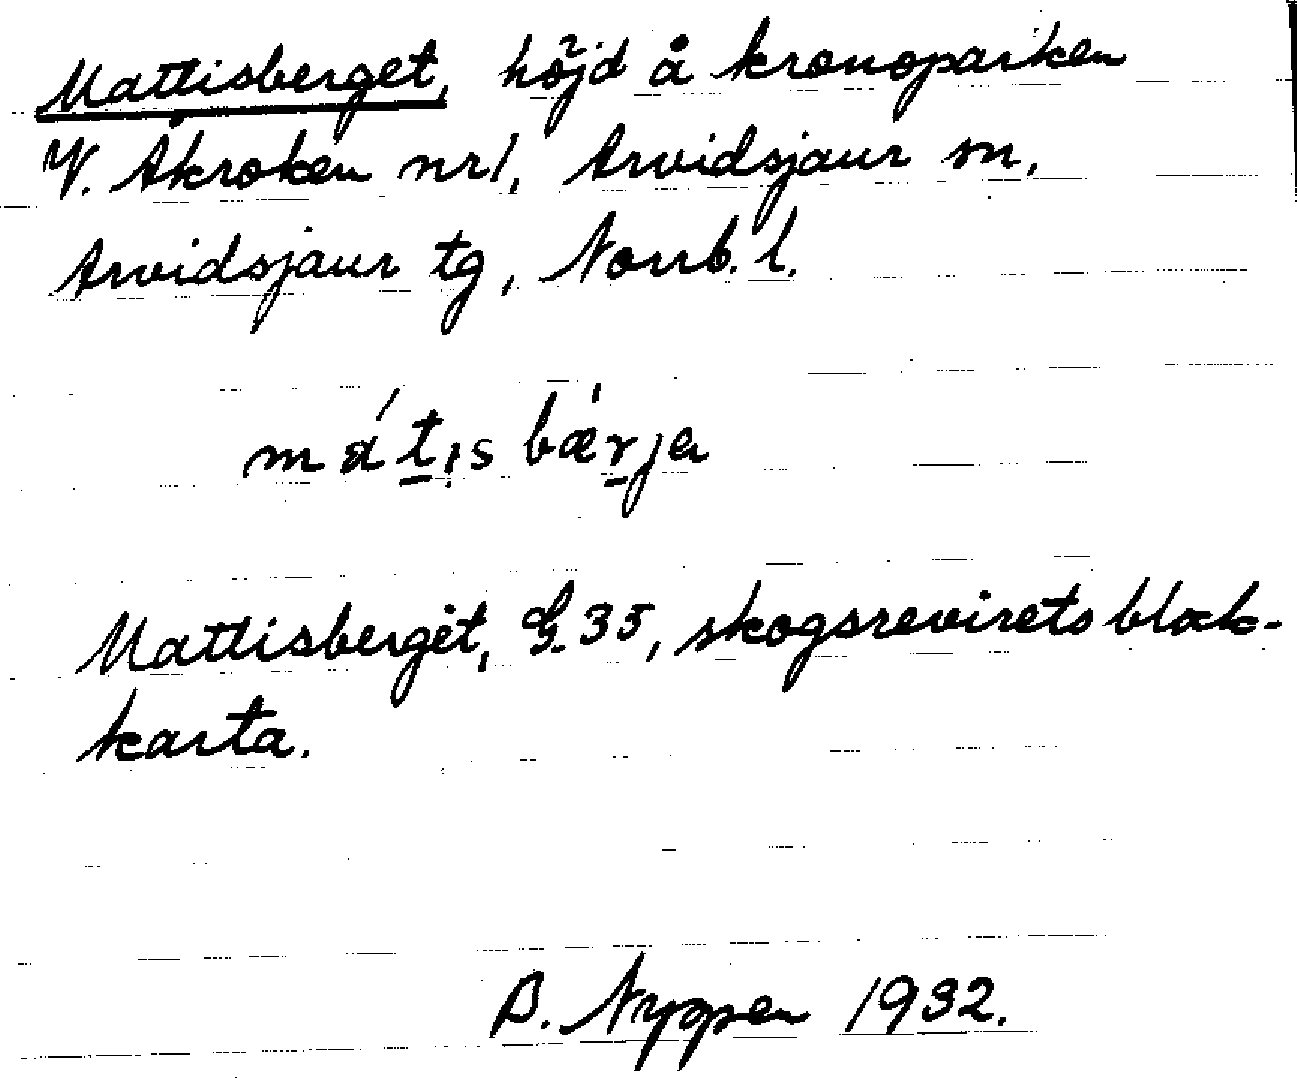 Mattisberget, höjd å kronoparken
V. Åkroken nr 1, Arvidsjaur sn,
Arvidsjaur tg, Norrb. l.
má̱tịs bǽṟja
Mattisberget, G. 35, skogsrevirets block-
karta.
Nyppen 1932.